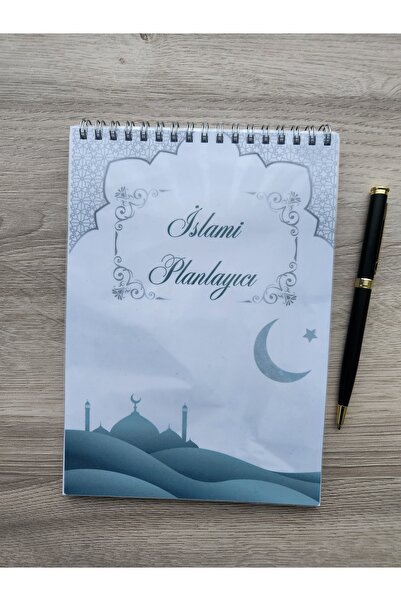 İslami
Planlayıcı